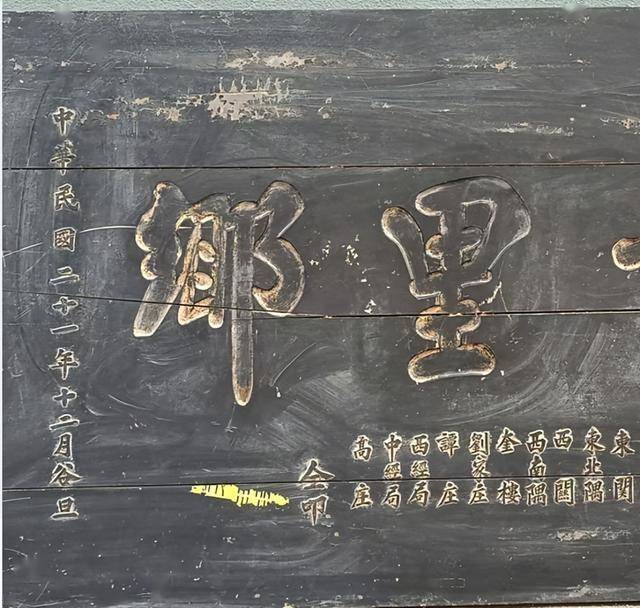 里鄉
東関
東北隅
西関
西南隅
奎樓
劉家庄
譚庄
西經局
中經局
高庄
仝叩
中華民國二十一年十二月谷旦